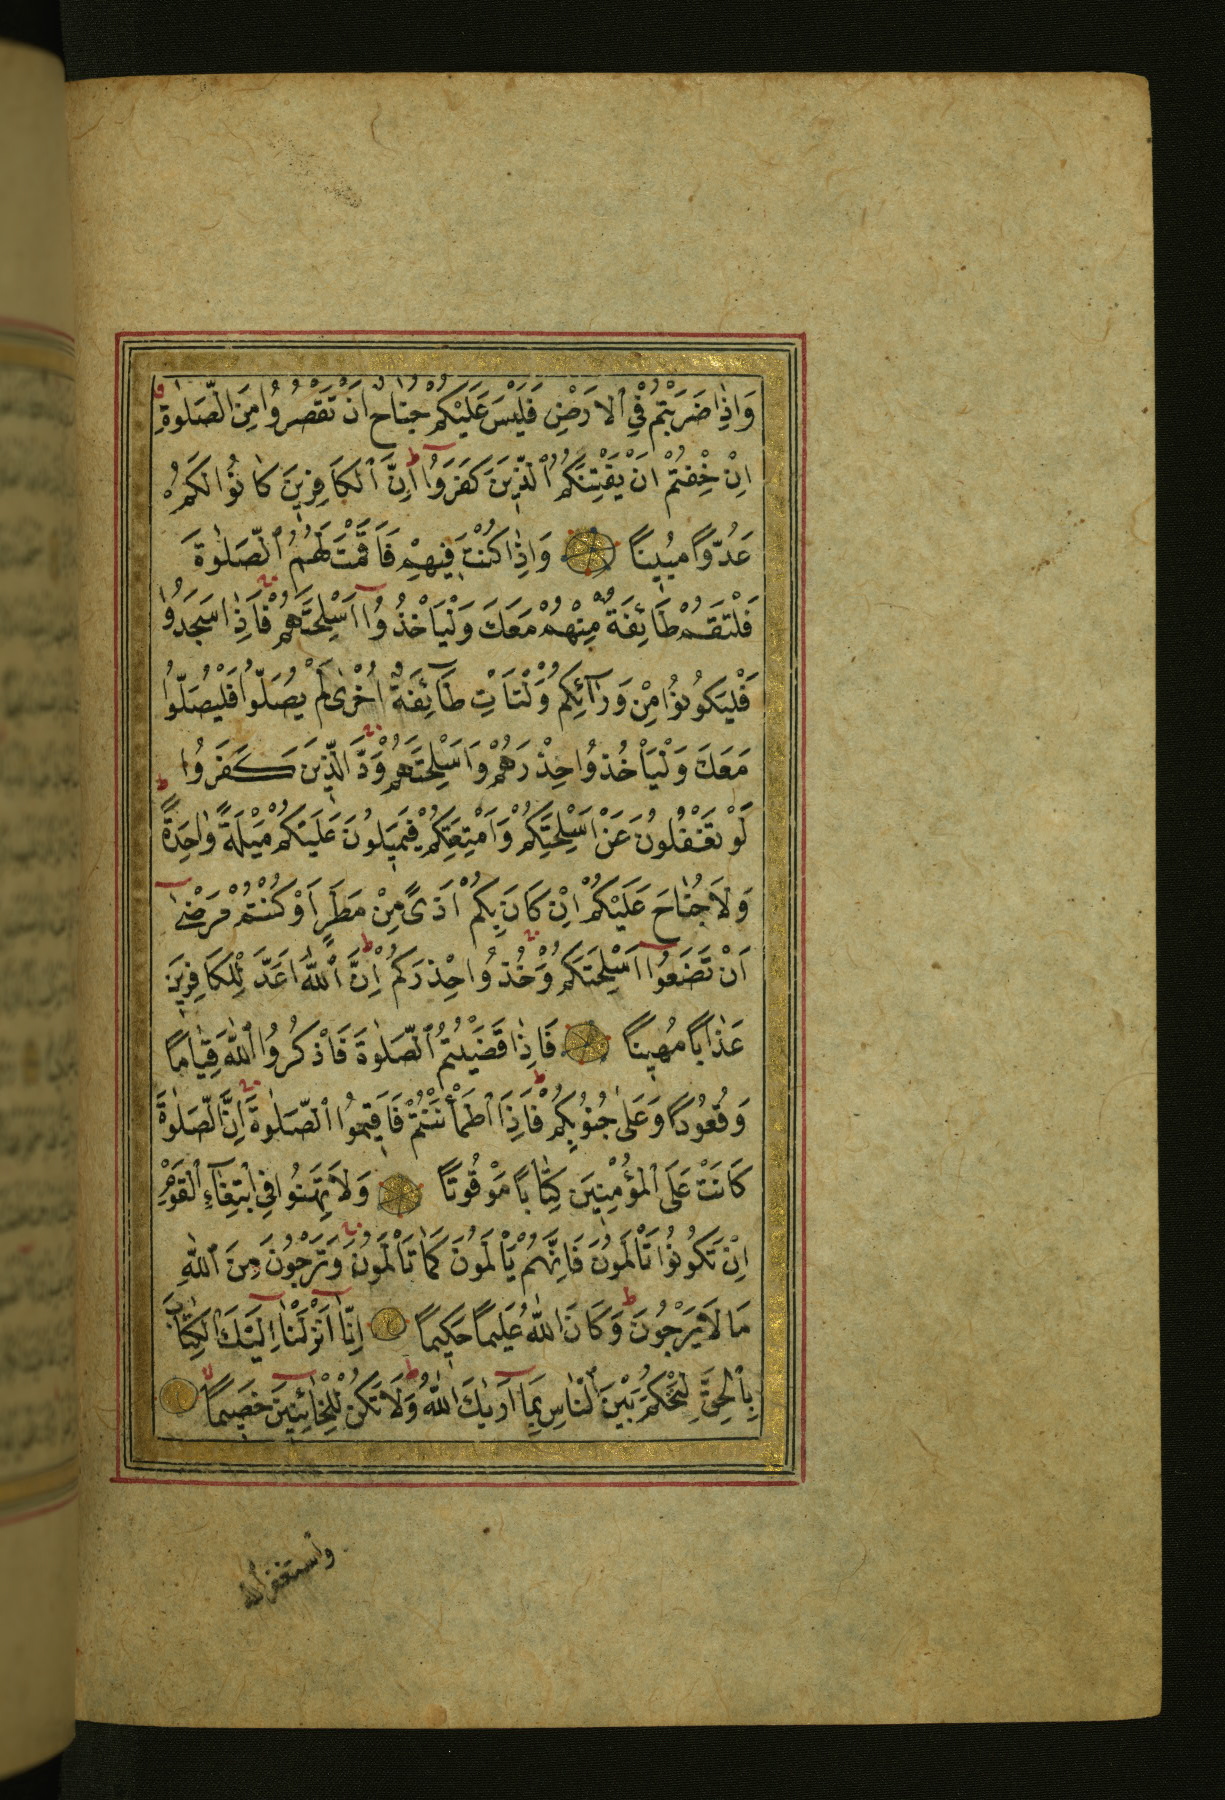 وَاِذَا ضَرَبْتُمْ فِي ٱلْاَرْضِ فَلَيْسَ عَلَيْكُمْ جُنَاحٌ اَنْ تَقْصُرُوا مِنَ ٱلصَّلٰوةِ
اِنْ خِفْتُمْ اَنْ يَفْتِنَكُمُ ٱلَّذِينَ كَفَرُوا اِنَّ ٱلْكَافِرِينَ كَانُوا لَكُمْ
عَدُوًّا مُبِينًا وَاِذَا كُنْتَ فِيهِمْ فَاَقَمْتَ لَهُمُ ٱلصَّلٰوةَ
فَلْتَقُمْ طَآئِفَةٌ مِنْهُمْ مَعَكَ وَلْيَاْخُذُوا اَسْلِحَتَهُمْ فَاِذَا سَجَدُوا
فَلْيَكُونُوا مِنْ وَرَآئِكُمْ وَلْتَاْتِ طَآئِفَةٌ اُخْرٰى لَمْ يُصَلُّوا فَلْيُصَلُّوا
مَعَكَ وَلْيَاْخُذُوا حِذْرَهُمْ وَاَسْلِحَتَهُمْ وَدَّ ٱلَّذِينَ كَفَرُوا
لَوْ تَغْفُلُونَ عَنْ اَسْلِحَتِكُمْ وَاَمْتِعَتِكُمْ فَيَمِيلُونَ عَلَيْكُمْ مَيْلَةً وَاحِدَةً
وَلَا جُنَاحَ عَلَيْكُمْ اِنْ كَانَ بِكُمْ اَذًى مِنْ مَطَرٍ اَوْ كُنْتُمْ مَرْضٰى
اَنْ تَضَعُوا اَسْلِحَتَكُمْ وَخُذُوا حِذْرَكُمْ اِنَّ ٱللّٰهَ اَعَدَّ لِلْكَافِرِينَ
عَذَابًا مُهِينًا فَاِذَا قَضَيْتُمُ ٱلصَّلٰوةَ فَاذْكُرُوا ٱللّٰهَ قِيَامًا
وَقُعُودًا وَعَلٰى جُنُوبِكُمْ فَاِذَا ٱطْمَأْنَنْتُمْ فَاَقِيمُوا ٱلصَّلٰوةَ اِنَّ ٱلصَّلٰوةَ
كَانَتْ عَلَى ٱلْمُؤْمِنِينَ كِتَابًا مَوْقُوتًا وَلَا تَهِنُوا فِي ٱبْتِغَآءِ ٱلْقَوْمِ
اِنْ تَكُونُوا تَاْلَمُونَ فَاِنَّهُمْ يَاْلَمُونَ كَمَا تَاْلَمُونَ وَتَرْجُونَ مِنَ ٱللّٰهِ
مَا لَا يَرْجُونَ وَكَانَ ٱللّٰهُ عَلِيمًا حَكِيمًا اِنَّا اَنْزَلْنَا اِلَيْكَ ٱلْكِتَابَ
بِٱلْحَقِّ لِتَحْكُمَ بَيْنَ ٱلنَّاسِ بِمَا اَرٰيكَ ٱللّٰهُ وَلَا تَكُنْ لِلْخَائِنِينَ خَصِيمًا
واستغفر الله